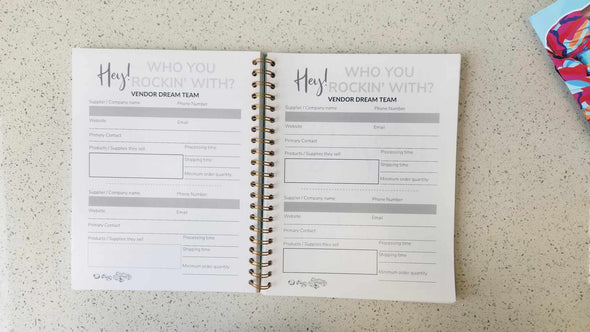 Hey! WHO YOU
ROCKIN' WITH?
VENDOR DREAM TEAM
Supplier / Company name Phone Number
Website Email
Primary Contact
Products / Supplies they sell Processing time
Shipping time
Minimum order quantity
Supplier / Company name Phone Number
Website Email
Primary Contact
Products / Supplies they sell Processing time
Shipping time
Minimum order quantity
Hey! WHO YOU
ROCKIN' WITH?
VENDOR DREAM TEAM
Supplier / Company name Phone Number
Website Email
Primary Contact
Products / Supplies they sell Processing time
Shipping time
Minimum order quantity
Supplier / Company name Phone Number
Website Email
Primary Contact
Products / Supplies they sell Processing time
Shipping time
Minimum order quantity